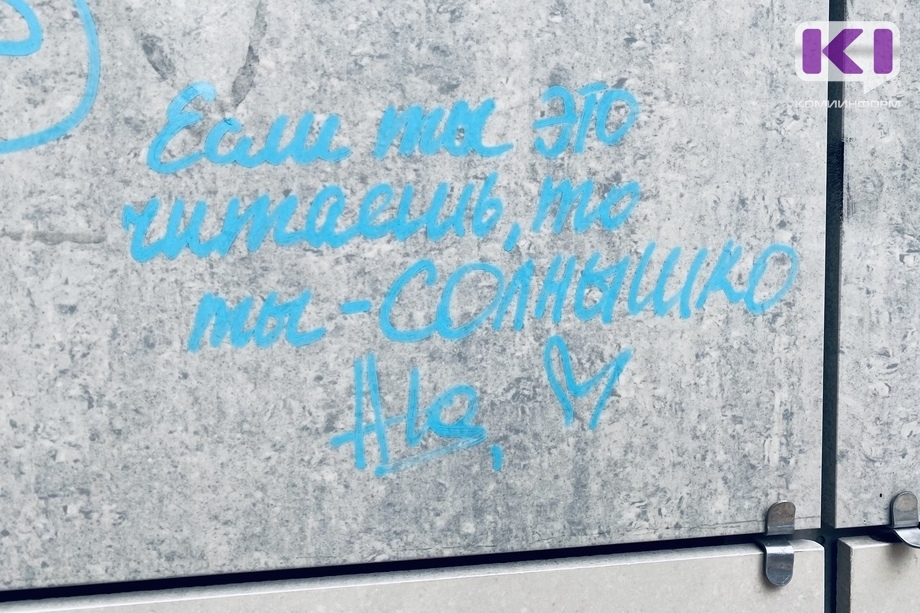 KI
КОМИИНФОРМ
Если ты это
читаешь, то
ты - СОЛНЫШКО